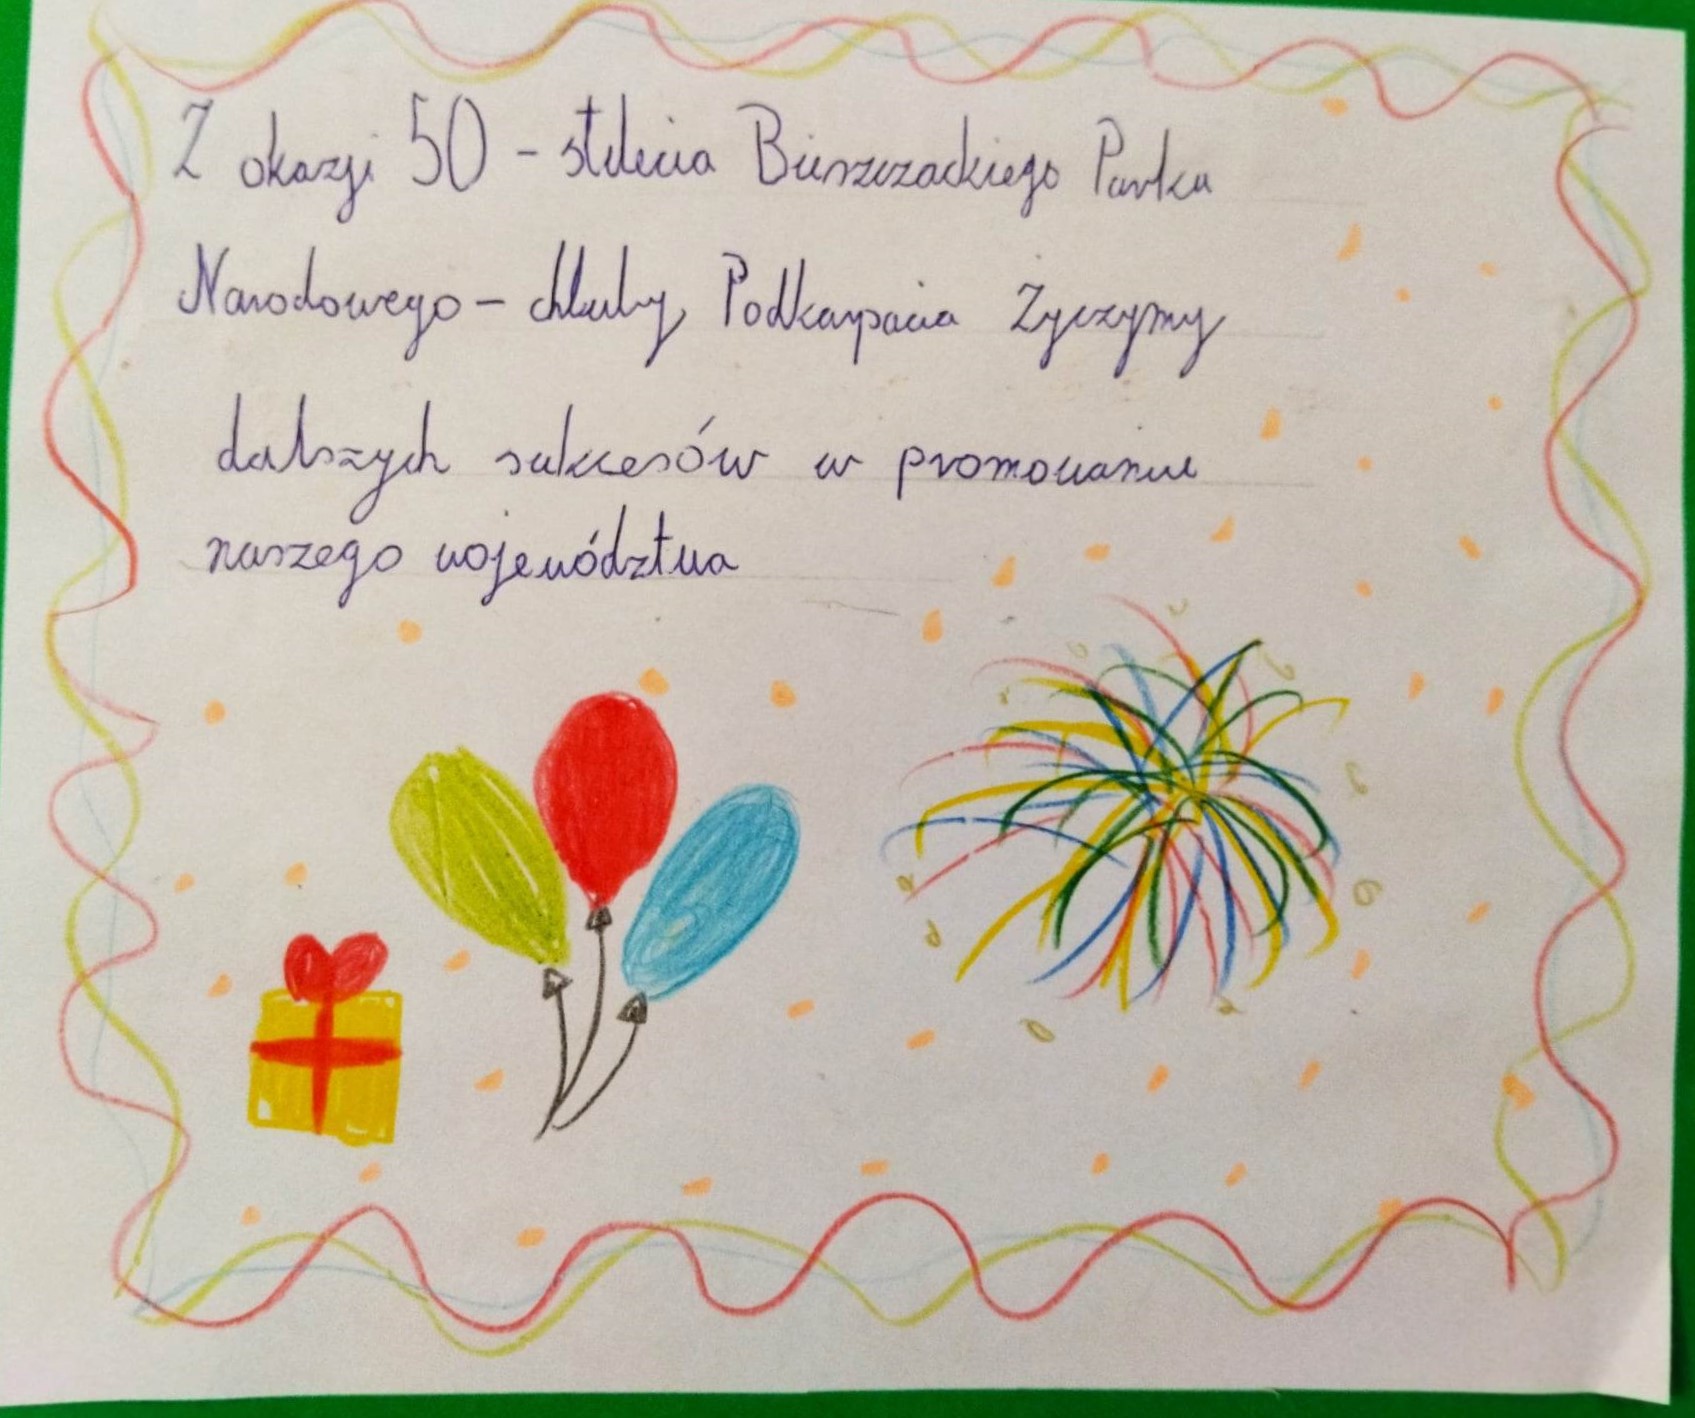 Z okazji 50 - stolecia Bieszczadzkiego Parku
Narodowego - chluby Podkarpacia Życzymy
dalszych sukcesów w promowaniu
naszego województwa